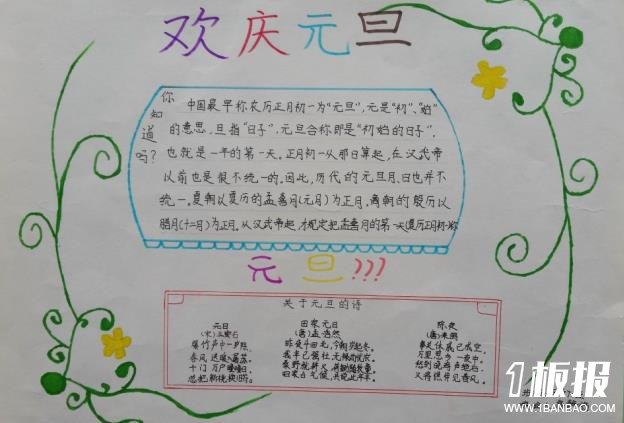 欢庆元旦
你知道吗?
中国最早称农历正月初一为“元旦”,元是“初”、“始”
的意思,旦指“日子”,元旦合称即是“初始的日子”,
也就是一年的第一天。正月初一从那日算起,在汉武帝
以前也是很不统一的,因此,历代的元旦月、日也并不
统一。夏朝以夏历的孟喜月(元月)为正月,商朝的殷历以
腊月(十二月)为正月,从汉武帝起,才规定把孟喜月的第一天(夏历正月初一)称
元旦???
关于元旦的诗
元日
(宋)王安石
爆竹声中一岁除,
春风送暖入屠苏。
千门万户曈曈日,
总把新桃换旧符。
田家元日
(唐)孟浩然
昨夜斗回北,今朝岁起东。
我年已强仕,无禄尚忧农。
桑野就耕父,荷锄随牧童。
田家占气候,共说此年丰。
除夜
(唐)来鹄
事关休戚已成空,
万里思乡一夜中。
愁到晓鸡声绝后,
又将憔悴见春风。
1板报
WWW.1BANBAO.COM